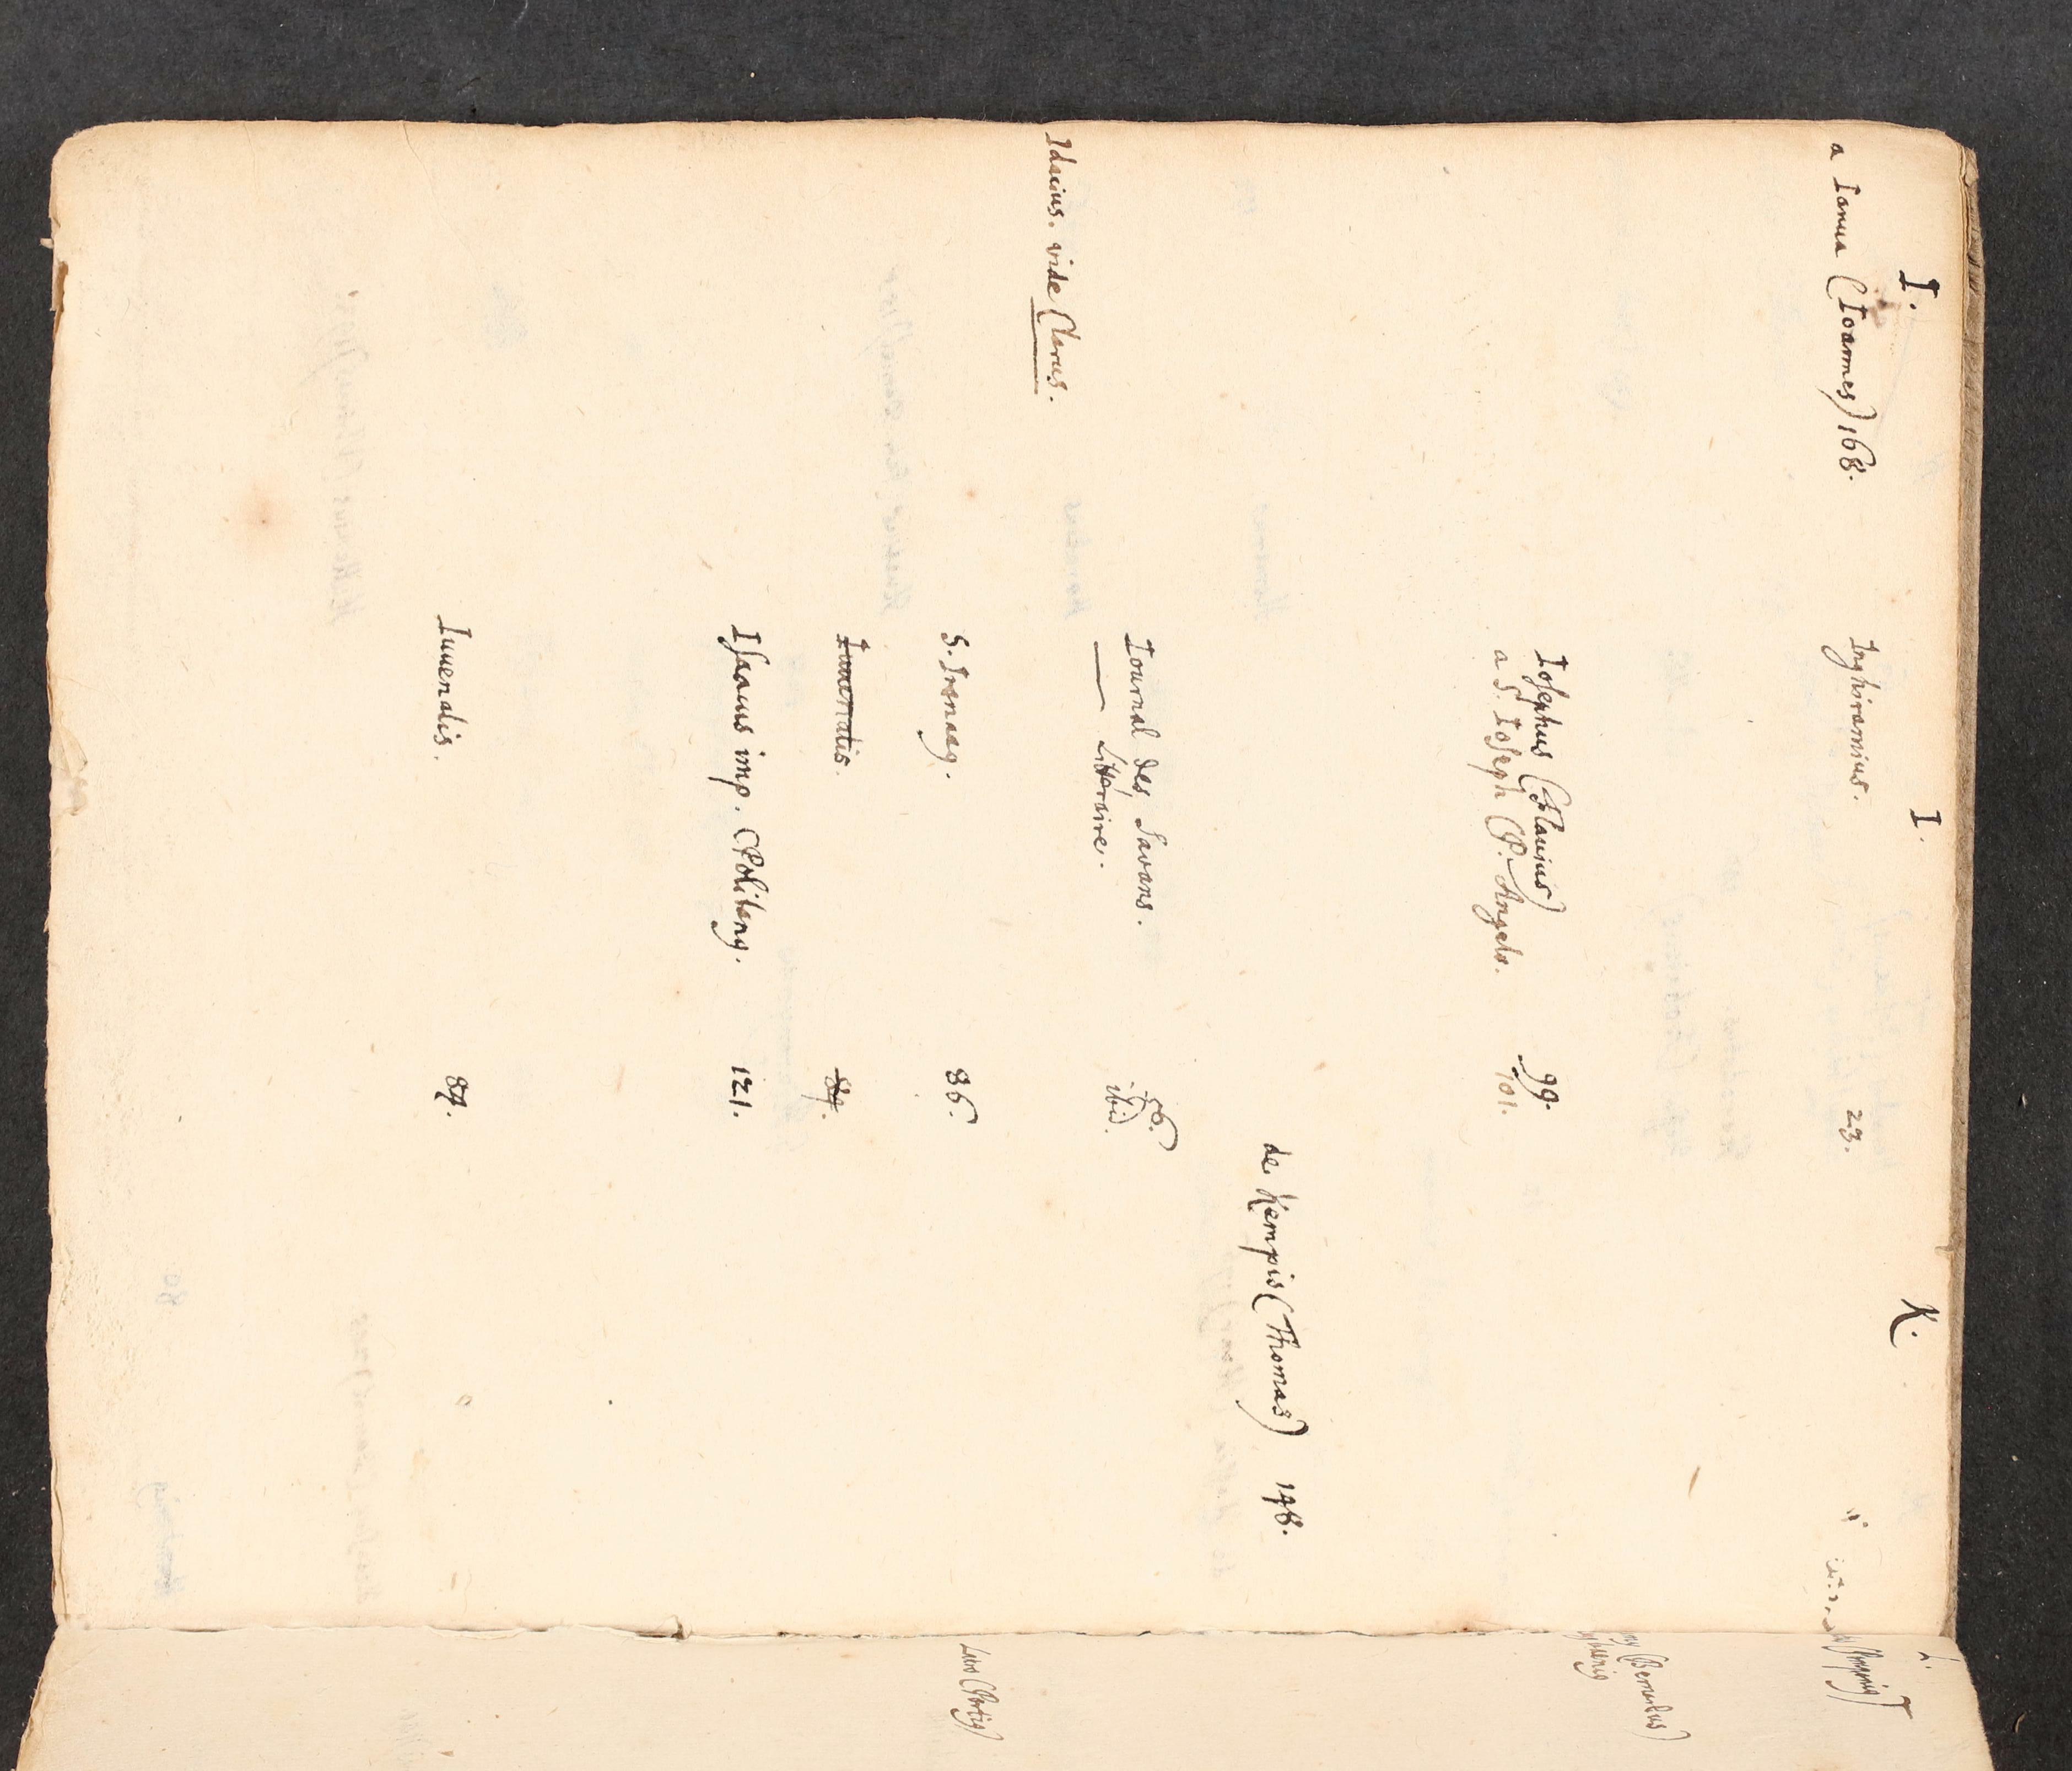 I.
a Ianua (Ioannes) 168.
Idacius. vide Clarus.
I.
Inghiramius. 23.
Iosephus (Flavius) 99.
a S. Ioseph (P. Angelo. 101.
Iournal des Savans. 56.
—— Littéraire. ibid.
S. Irenaeg. 36.
Iuuenalis. 87.
Isaacus imp. CPoliteng. 121.
Iuuenalis. 87.
K.
de Kempis (Thomas) 148.
L.
(Bernardus)